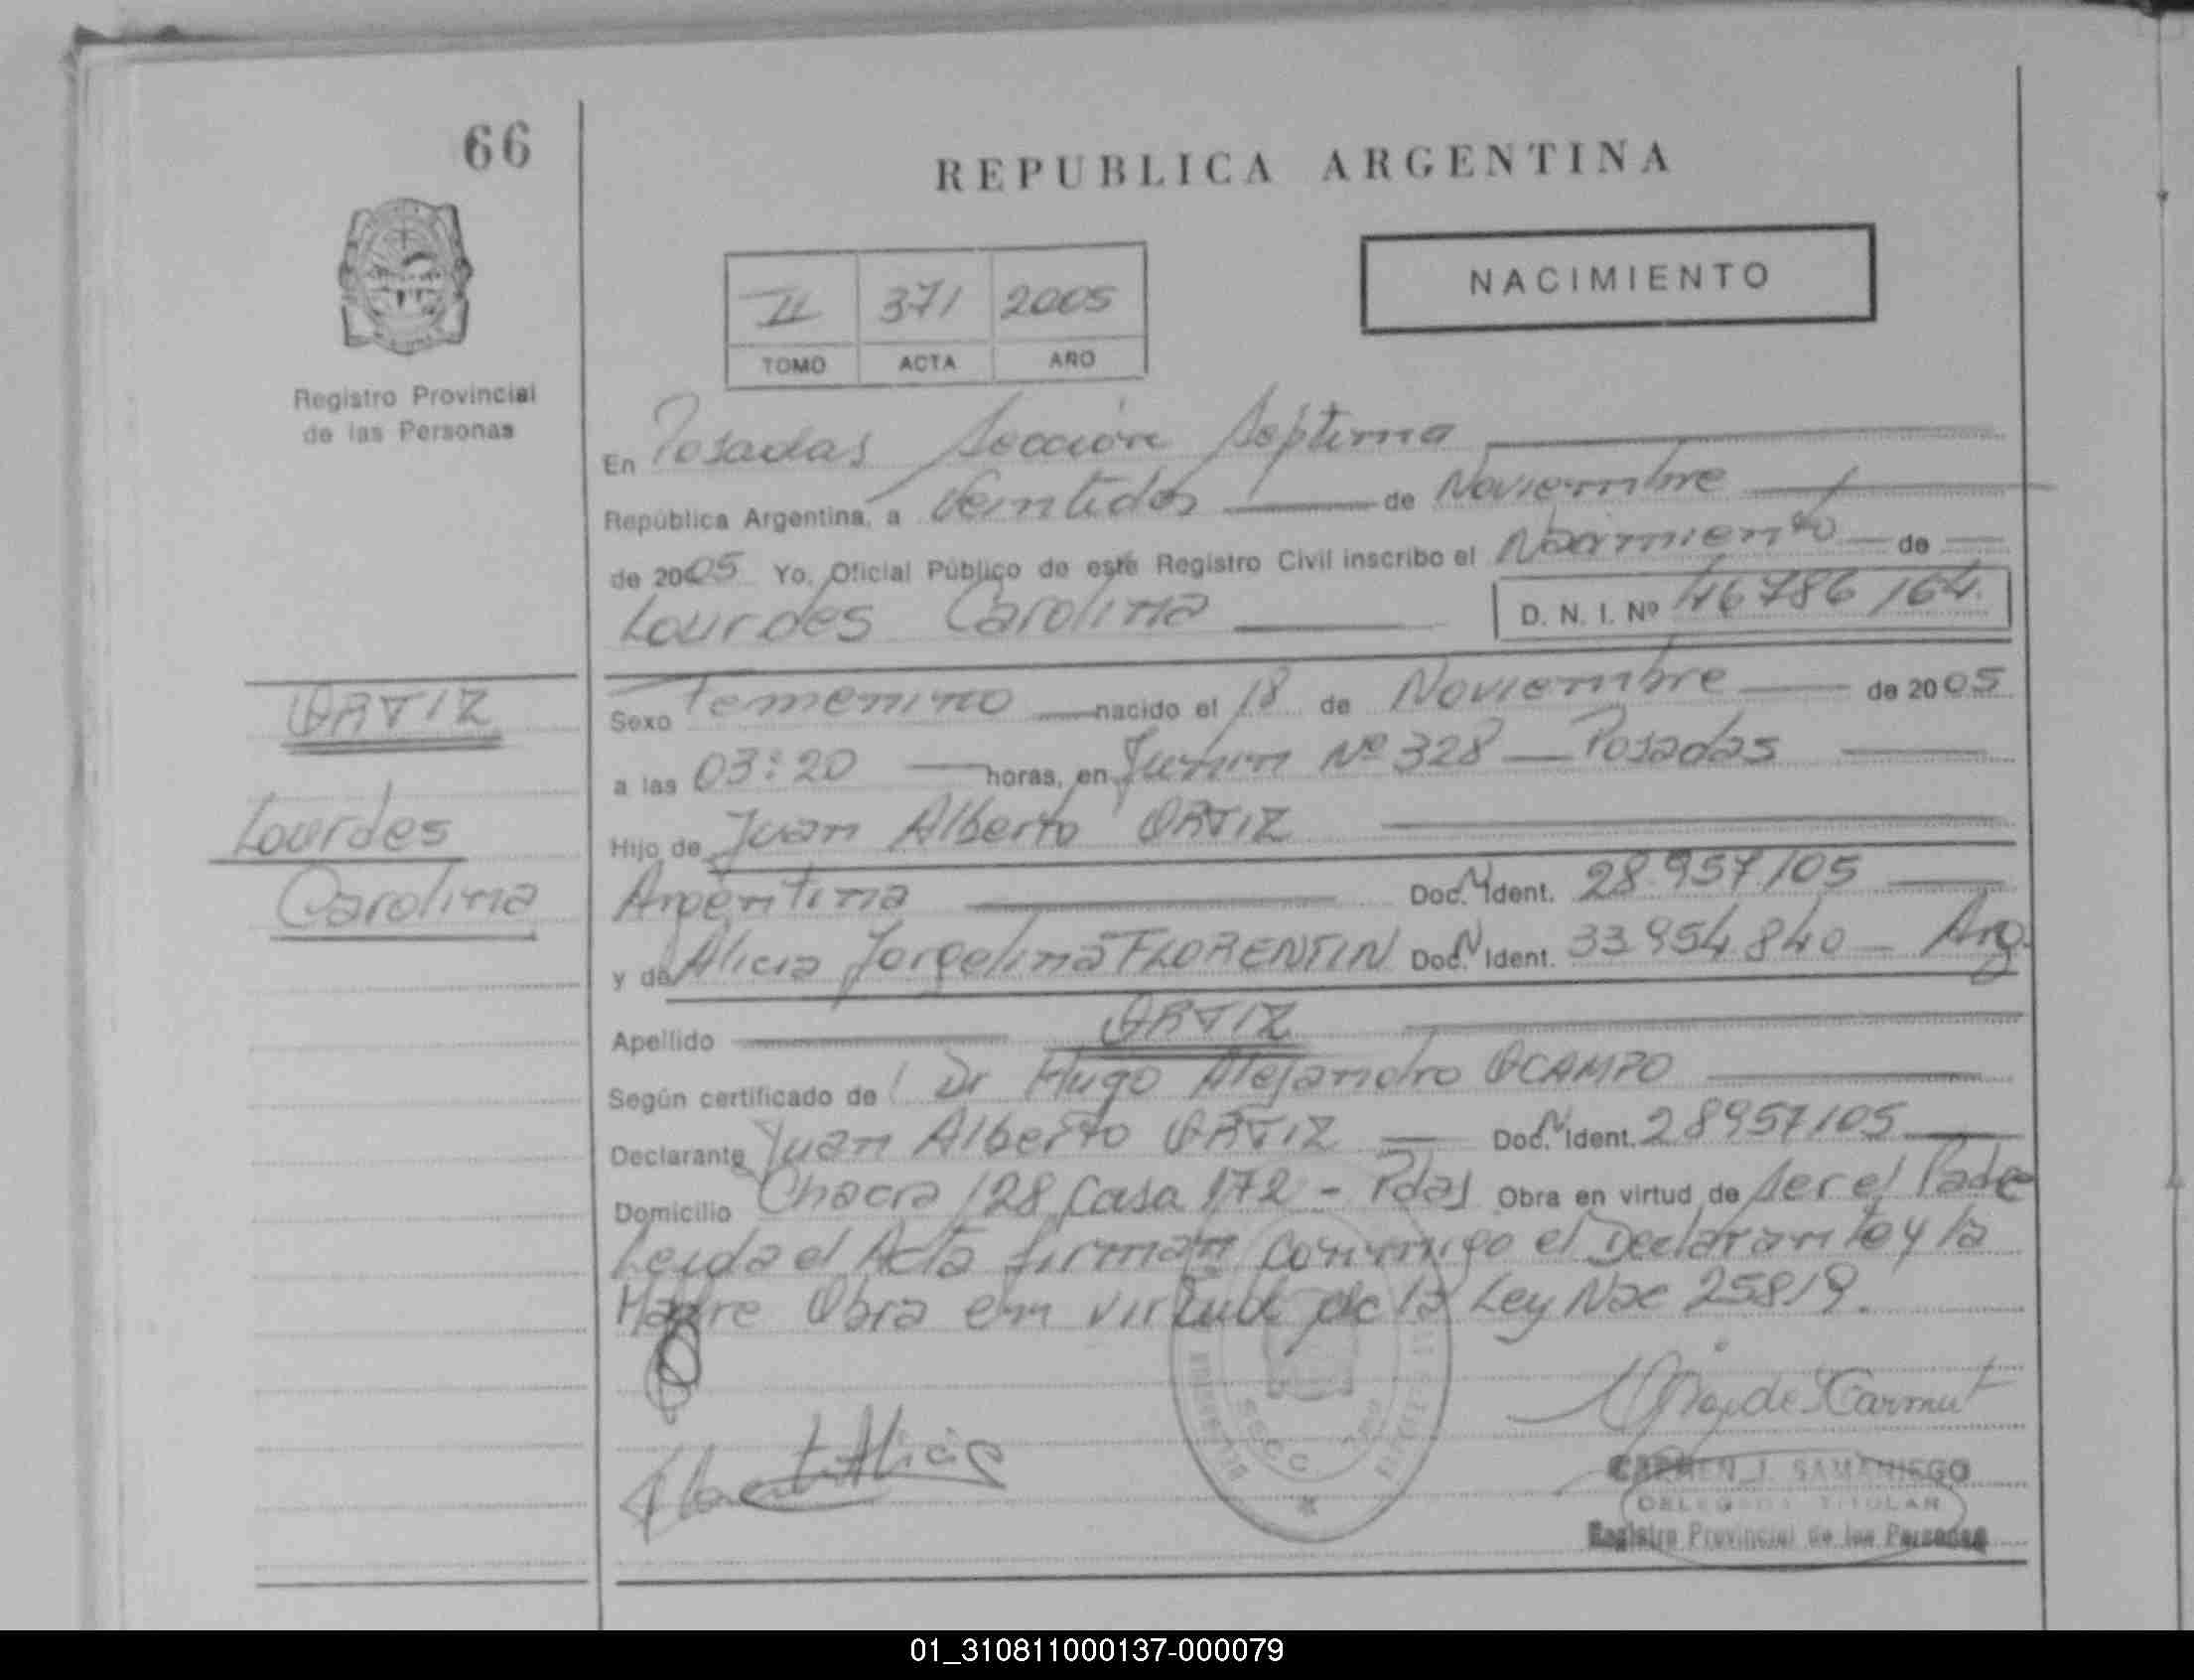 66
REPUBLICA ARGENTINA
NACIMIENTO
II 371 2005
TOMO ACTA AÑO
Registro Provincial
de las Personas
En Posadas Sección Septima
República Argentina, a Veintidos de Noviembre
de 2005 Yo, Oficial Público de este Registro Civil inscribo el Nacimiento de
Lourdes Carolina D. N. I. Nº 46786164
ORTIZ
Lourdes
Carolina
Sexo Femenino nacido el 18 de Noviembre de 2005
a las 03:20 horas, en Junin Nº 328 — Posadas
Hijo de Juan Alberto ORTIZ
Argentina Doc. N Ident. 28.957105
y de Alicia Jorgelina FLORENTIN Doc. N Ident. 33.954.840 — Arg.
Apellido ORTIZ
Según certificado de Dr Hugo Alejandro OCAMPO
Declarante Juan Alberto ORTIZ Doc. N Ident. 28957105
Domicilio Chacra 128 Casa 172 - Pdas Obra en virtud de ser el Padre
Leida el Acta firman conmigo el Declarante y la
Madre Obra en virtud de la Ley Nac 25819.
CARMEN J. SAMANIEGO
DELEGADA TITULAR
Registro Provincial de las Personas
01_310811000137-000079